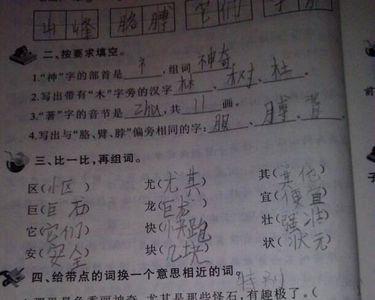 山峰 胳膊 它们
二、按要求填空。
1.“神”字的部首是 礻 ,组词 神奇 。
2.写出带有“木”字旁的汉字 林 、 树 、 杜
3.“著”字的音节是 zhù ,共 11 画。
4.写出与“胳、臂、脖”偏旁相同的字: 胆 、 膊 、 背
三、比一比,再组词。
区(小区) 尤(尤其) 其(其他)
巨(巨石) 龙(巨龙) 宜(便宜)
它(它们) 快(快跑) 壮(强壮)
安(安全) 块(几块) 状(状元)
四、给带点的词换一个意思相近的词。
特别
尤其是那些怪石,有趣极了。(